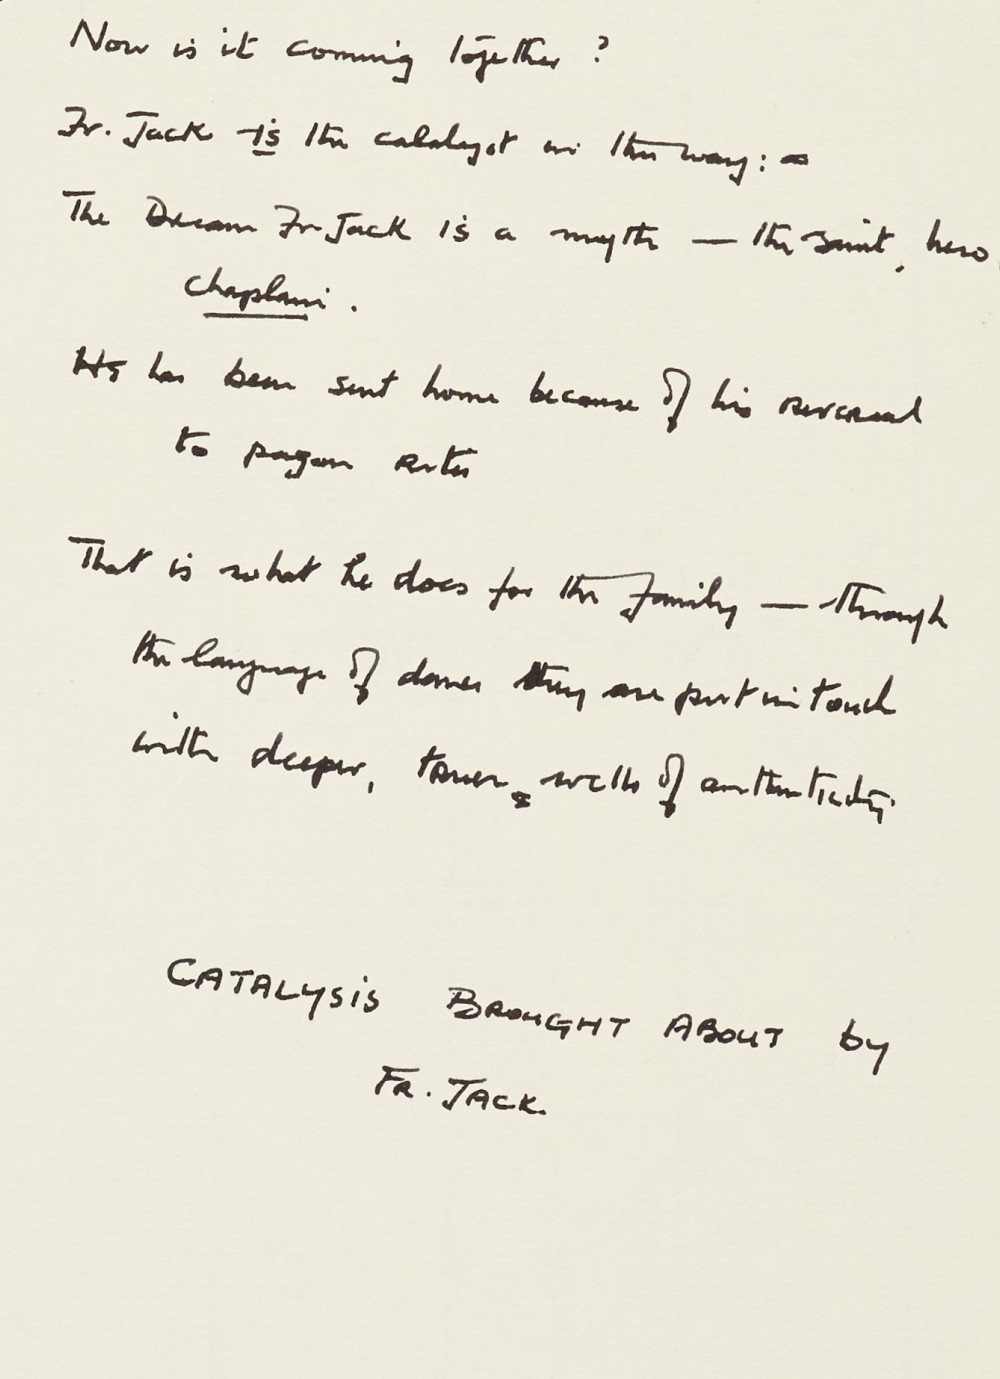 Now is it coming together ?
Fr. Jack is the catalyst in this way : -
The Dream Fr Jack is a myth — the saint, hero,
chaplain .
He has been sent home because of his reversal
to pagan rites
That is what he does for the family — through
the language of dance they are put in touch
with deeper, truer wells of authenticity.
CATALYSIS BROUGHT ABOUT by
FR. JACK.